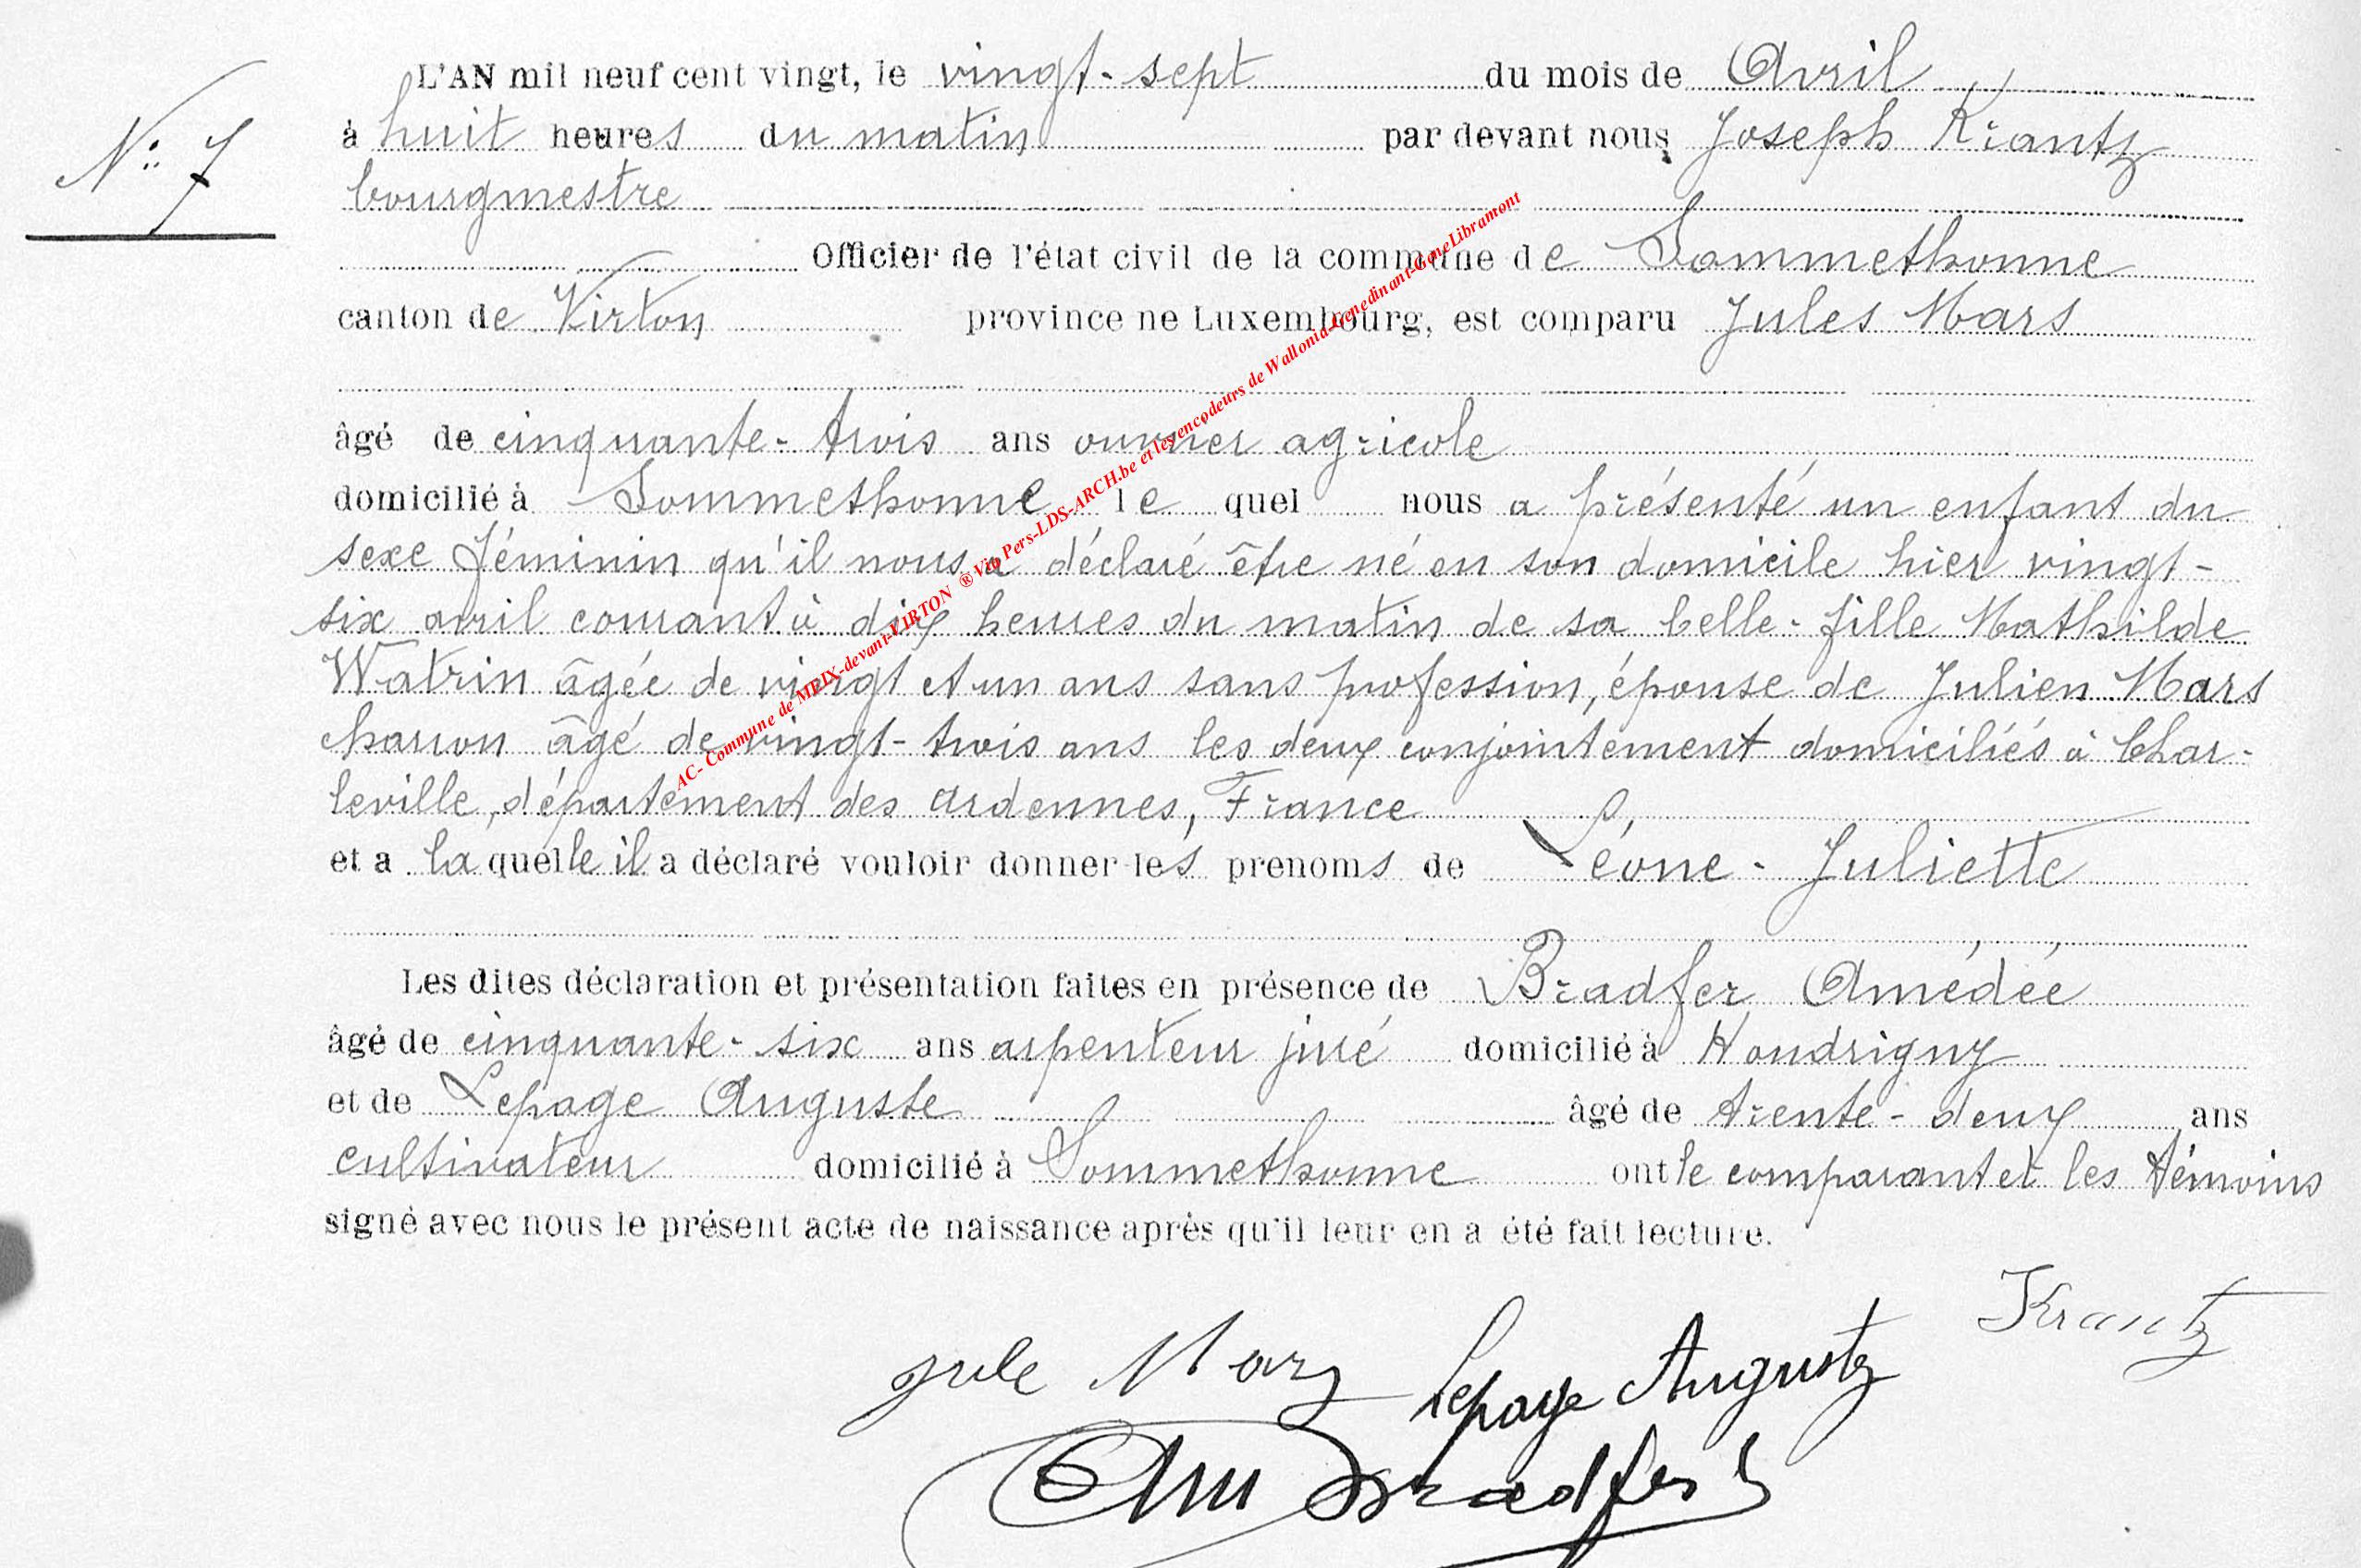 L'AN mil neuf cent vingt, le vingt-sept du mois de Avril
N° 7
à huit heures du matin par devant nous Joseph Krantz
bourgmestre
Officier de l'état civil de la commune de Sommethonne
canton de Virton province ne Luxembourg, est comparu Jules Mars
âgé de cinquante-trois ans ouvrier agricole
domicilié à Sommethonne le quel nous a présenté un enfant du
sexe féminin qu'il nous a déclaré être né en son domicile hier vingt-
six avril courant à dix heures du matin de sa belle-fille Mathilde
Watrin âgée de vingt et un ans sans profession, épouse de Julien Mars
charron âgé de vingt-trois ans les deux conjointement domiciliés à Char-
leville, département des Ardennes, France
et a laquelle il a déclaré vouloir donner les prenoms de Léone-Juliette
Les dites déclaration et présentation faites en présence de Bradfer Amédée
âgé de cinquante-six ans arpenteur juré domicilié à Houdrigny
et de Lepage Auguste âgé de trente-deux ans
cultivateur domicilié à Sommethonne ont le comparant et les témoins
signé avec nous le présent acte de naissance après qu'il leur en a été fait lecture.
Krantz
jule Mars Lepage Auguste
Am Bradfer
AC- Commune de MEIX-devant-VIRTON ® Via Pers-LDS-ARCH.be et les encodeurs de Wallonia-Genedinant-GeneLibramont